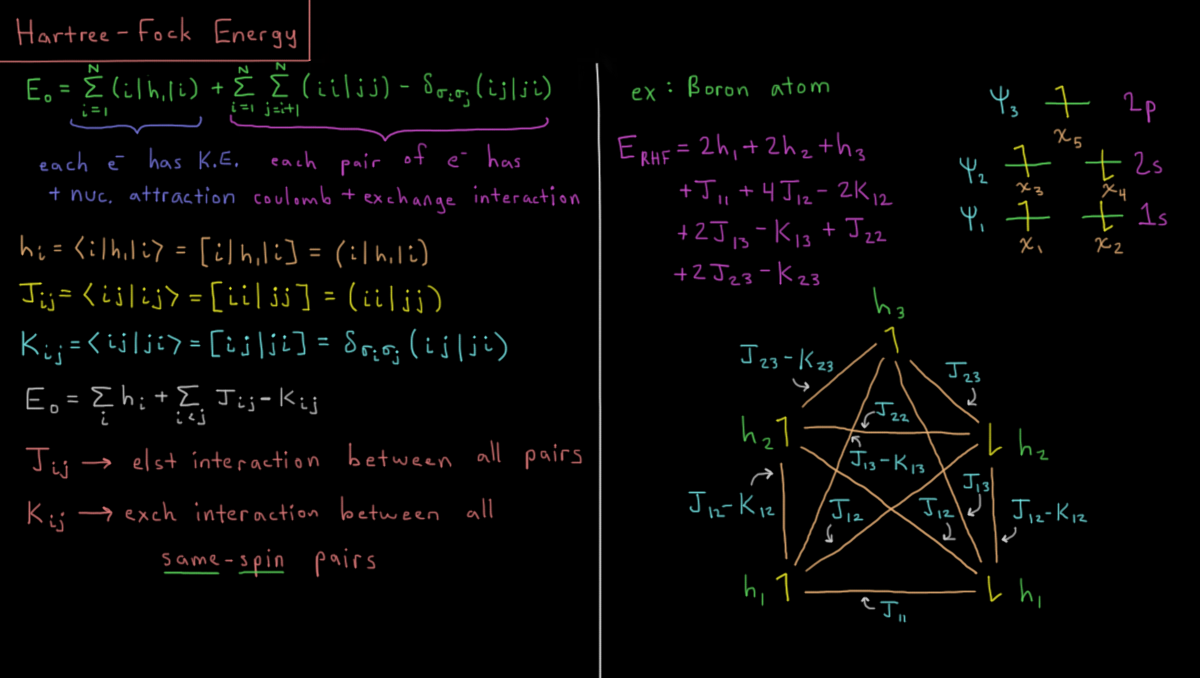 Hartree-Fock Energy
E₀ = Σ_{i=1}^{N} (i|h₁|i) + Σ_{i=1}^{N} Σ_{j=i+1}^{N} (ii|jj) - δ_{σᵢσⱼ}(ij|ji)
each e⁻ has K.E. + nuc. attraction
each pair of e⁻ has coulomb + exchange interaction
hᵢ = <i|h₁|i> = [i|h₁|i] = (i|h₁|i)
Jᵢⱼ = <ij|ij> = [ii|jj] = (ii|jj)
Kᵢⱼ = <ij|ji> = [ij|ji] = δ_{σᵢσⱼ}(ij|ji)
E₀ = Σ_{i} hᵢ + Σ_{i<j} Jᵢⱼ - Kᵢⱼ
Jᵢⱼ → elst interaction between all pairs
Kᵢⱼ → exch interaction between all
same-spin pairs
ex: Boron atom
E_{RHF} = 2h₁ + 2h₂ + h₃
+ J₁₁ + 4J₁₂ - 2K₁₂
+ 2J₁₃ - K₁₃ + J₂₂
+ 2J₂₃ - K₂₃
ψ₃ 1 2p
x₅
ψ₂ 1 2s
x₃ x₄
ψ₁ 1 1s
x₁ x₂
h₃
J₂₃-K₂₃ J₂₃
J₂₂
h₂ h₂
J₁₃-K₁₃
J₁₃
J₁₂-K₁₂ J₁₂ J₁₂ J₁₂-K₁₂
h₁ h₁
J₁₁